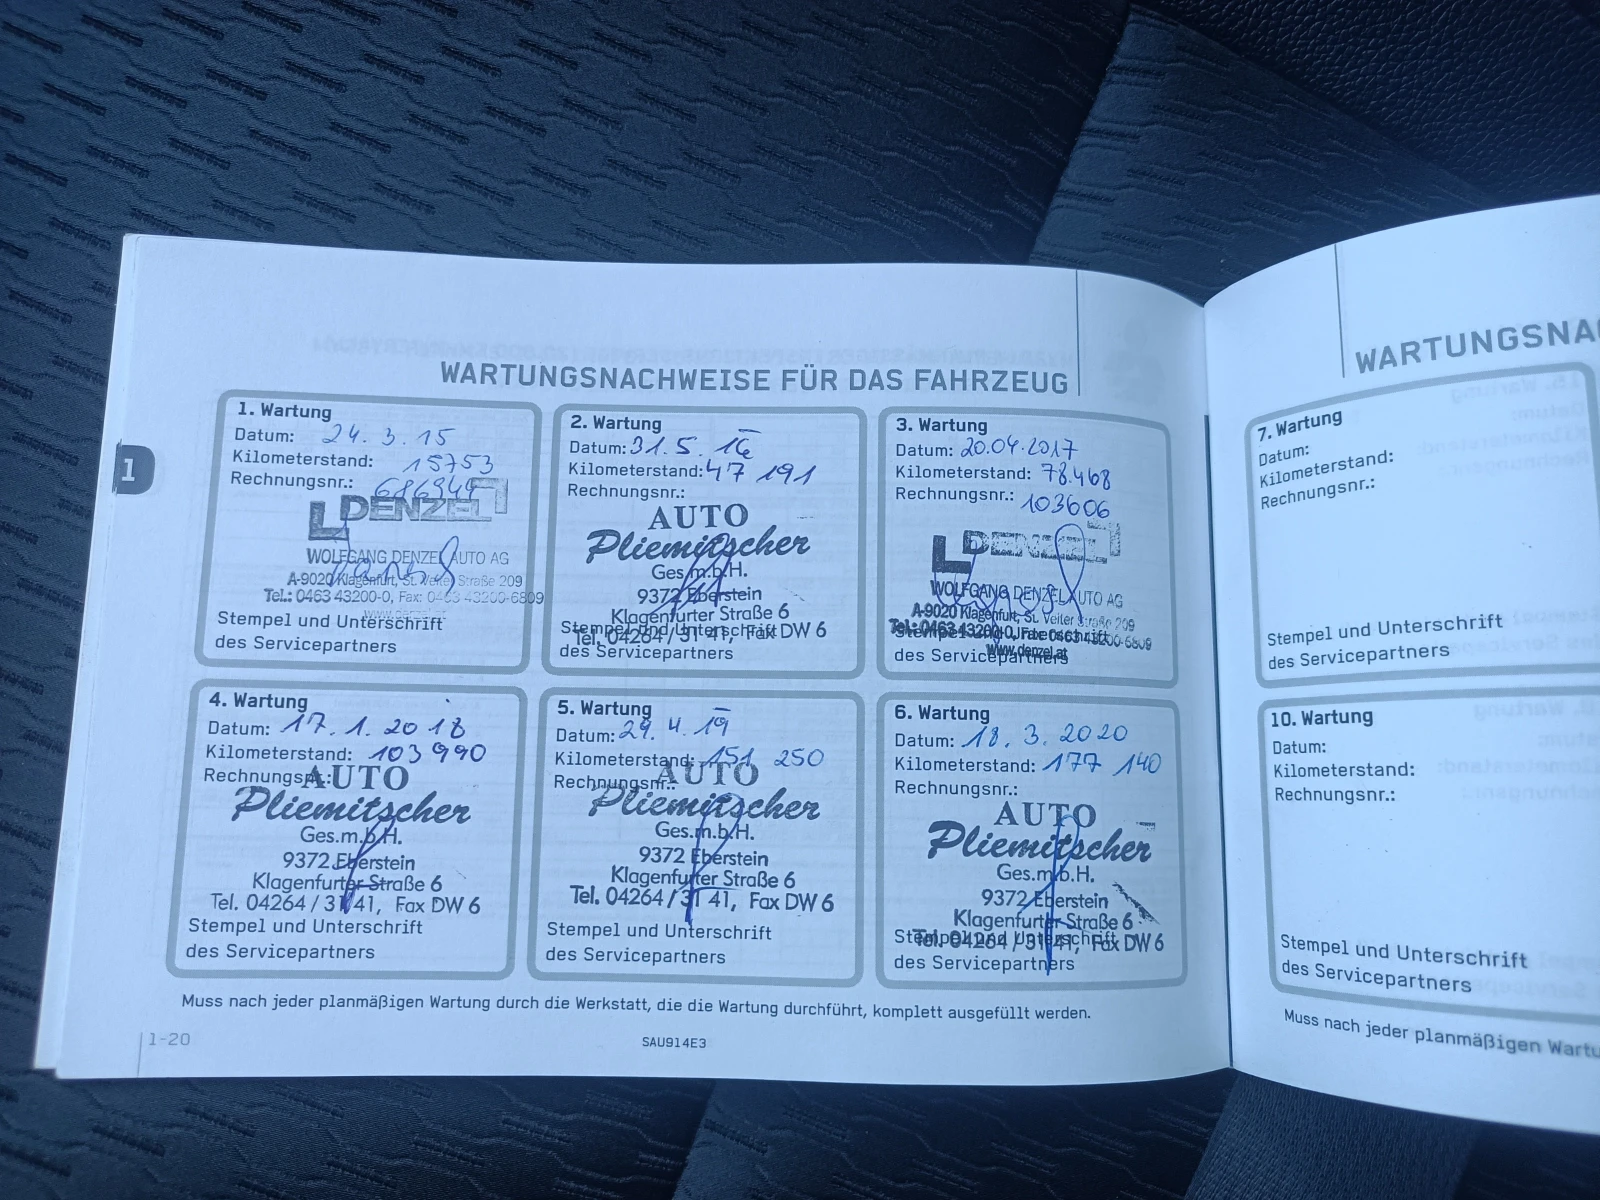 WARTUNGSNACHWEISE FÜR DAS FAHRZEUG
1
1. Wartung
Datum: 24. 3. 15
Kilometerstand: 15753
Rechnungsnr.: 686944
DENZEL
WOLFGANG DENZEL AUTO AG
A-9020 Klagenfurt, St. Veiter Straße 209
Tel.: 0463 43200-0, Fax: 0463 43200-6809
www.denzel.at
Stempel und Unterschrift
des Servicepartners
2. Wartung
Datum: 31. 5. 16
Kilometerstand: 47 191
Rechnungsnr.:
AUTO
Pliemitscher
Ges.m.b.H.
9372 Eberstein
Klagenfurter Straße 6
Tel. 04264 / 31 41, Fax DW 6
Stempel und Unterschrift
des Servicepartners
3. Wartung
Datum: 20.04.2017
Kilometerstand: 78.468
Rechnungsnr.: 103606
DENZEL
WOLFGANG DENZEL AUTO AG
A-9020 Klagenfurt, St. Veiter Straße 209
Tel.: 0463 43200-0, Fax: 0463 43200-6809
www.denzel.at
Stempel und Unterschrift
des Servicepartners
4. Wartung
Datum: 17. 1. 2018
Kilometerstand: 103 990
Rechnungsnr.:
AUTO
Pliemitscher
Ges.m.b.H.
9372 Eberstein
Klagenfurter Straße 6
Tel. 04264 / 31 41, Fax DW 6
Stempel und Unterschrift
des Servicepartners
5. Wartung
Datum: 29. 4. 19
Kilometerstand: 151 250
Rechnungsnr.:
AUTO
Pliemitscher
Ges.m.b.H.
9372 Eberstein
Klagenfurter Straße 6
Tel. 04264 / 31 41, Fax DW 6
Stempel und Unterschrift
des Servicepartners
6. Wartung
Datum: 18. 3. 2020
Kilometerstand: 177 140
Rechnungsnr.:
AUTO
Pliemitscher
Ges.m.b.H.
9372 Eberstein
Klagenfurter Straße 6
Tel. 04264 / 31 41, Fax DW 6
Stempel und Unterschrift
des Servicepartners
Muss nach jeder planmäßigen Wartung durch die Werkstatt, die die Wartung durchführt, komplett ausgefüllt werden.
1-20
SAU914E3
WARTUNGSNA
7. Wartung
Datum:
Kilometerstand:
Rechnungsnr.:
Stempel und Unterschrift
des Servicepartners
10. Wartung
Datum:
Kilometerstand:
Rechnungsnr.:
Stempel und Unterschrift
des Servicepartners
Muss nach jeder planmäßigen Wartu